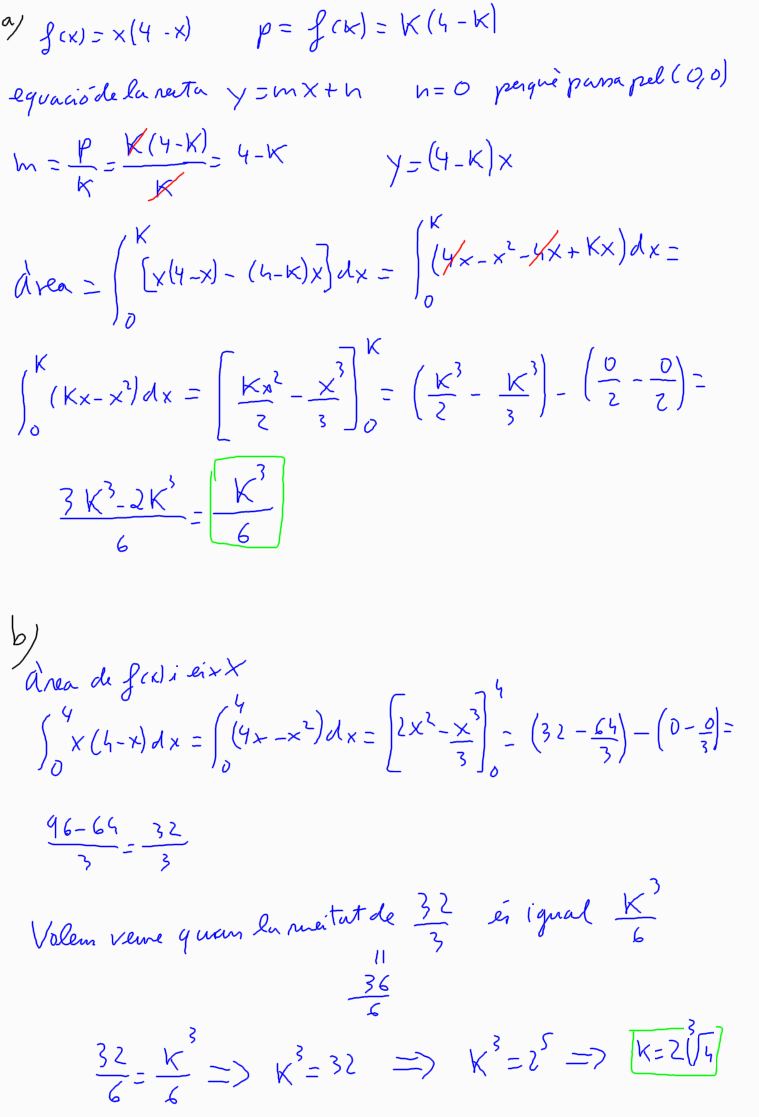 a) f(x) = x(4 - x) p = f(k) = K(4 - K)
equació de la recta y = mx + n n = 0 perquè passa pel (0,0)
m = p/K = K(4-K)/K = 4-K y = (4-K)x
àrea = ∫₀ᴷ [x(4-x) - (4-K)x] dx = ∫₀ᴷ (4x - x² - 4x + Kx) dx =
∫₀ᴷ (Kx - x²) dx = [Kx²/2 - x³/3]₀ᴷ = (K³/2 - K³/3) - (0/2 - 0/2) =
(3K³ - 2K³)/6 = K³/6
b)
àrea de f(x) i eix X
∫₀⁴ x(4-x) dx = ∫₀⁴ (4x - x²) dx = [2x² - x³/3]₀⁴ = (32 - 64/3) - (0 - 0/3) =
(96-64)/3 = 32/3
Volem veure quan la meitat de 32/3 és igual K³/6
=
36/6
32/6 = K³/6 => K³ = 32 => K³ = 2⁵ => K = 2∛4